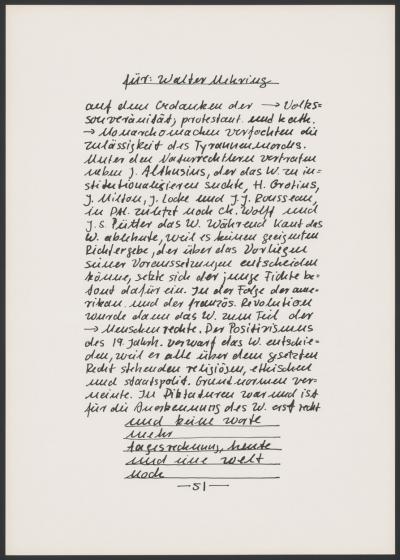 für: Walter Mehring
auf dem Gedanken der → Volks=
souveränität; protestant. und kath.
→ Monarchomachen verfochten die
Zulässigkeit des Tyrannenmordes.
Unter den Naturrechtlern vertraten
neben J. Althusius, der das W. zu in=
stitutionalisieren suchte, H. Grotius,
J. Milton, J. Locke und J. J. Rousseau,
in Dtl. zuletzt noch Ch. Wolff und
J. S. Pütter das W. Während Kant das
W. ablehnte, weil es keinen geeigneten
Richter gebe, der über das Vorliegen
seiner Voraussetzungen entscheiden
könne, setzte sich der junge Fichte be=
tont dafür ein. In der Folge der ame=
rikan. und der französ. Revolution
wurde dann das W. zum Teil der
→ Menschenrechte. Der Positivismus
des 19. Jahrh. verwarf das W. entschie=
den, weil er alle über dem gesetzten
Recht stehenden religiösen, ethischen
und staatspolit. Grundnormen ver=
neinte. In Diktaturen war und ist
für die Anerkennung des W. erst recht
und keine worte
mehr
tagesrechnung, heute
und eine welt
noch
— 51 —